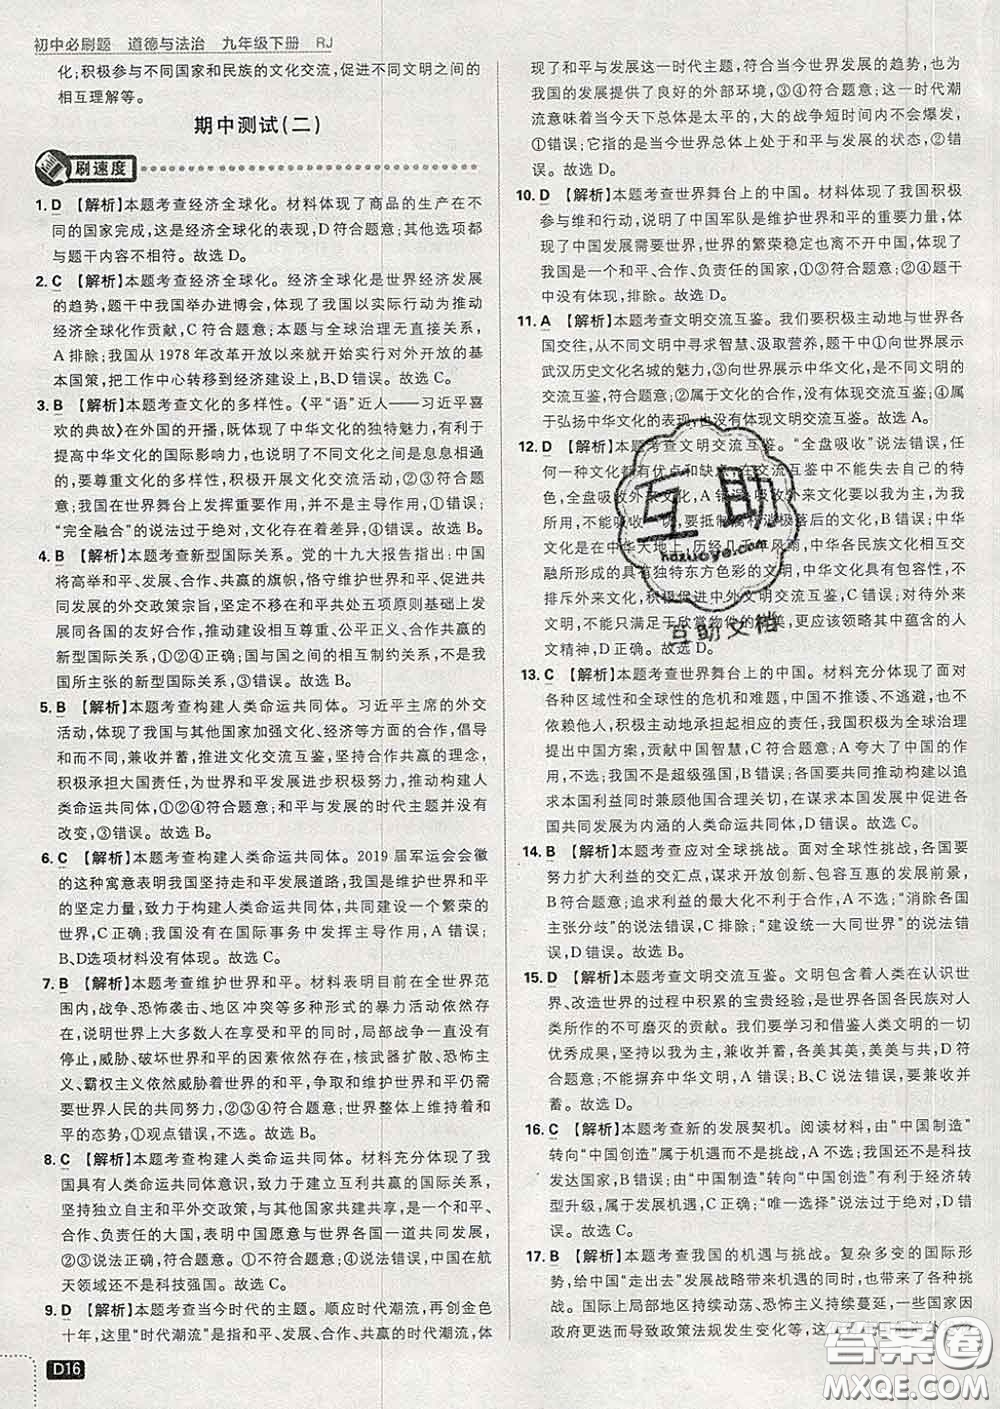 初中必刷题 道德与法治 九年级下册 RJ
化;积极参与不同国家和民族的文化交流,促进不同文明之间的
相互理解等。
期中测试(二)
刷速度
1. D 【解析】本题考查经济全球化。材料体现了商品的生产在不
同的国家完成,这是经济全球化的表现,D符合题意;其他选项都
与题干内容不相符。故选D。
2. C 【解析】本题考查经济全球化。经济全球化是世界经济发展
的趋势,题干中我国举办进博会,体现了我国以实际行动为推动
经济全球化作贡献,C符合题意;本题与全球治理无直接关系,
A排除;我国从1978年改革开放以来就开始实行对外开放的基
本国策,把工作中心转移到经济建设上,B、D错误。故选C。
3. B 【解析】本题考查文化的多样性。《平“语”近人——习近平喜
欢的典故》在外国的开播,既体现了中华文化的独特魅力,有利于
提高中华文化的国际影响力,也说明了不同文化之间是息息相通
的,要尊重文化的多样性,积极开展文化交流活动,②③符合题
意;我国在世界舞台上发挥重要作用,并不是主导作用,①错误;
“完全融合”的说法过于绝对,文化存在着差异,④错误。故选B。
4. B 【解析】本题考查新型国际关系。党的十九大报告指出:中国
将高举和平、发展、合作、共赢的旗帜,恪守维护世界和平、促进共
同发展的外交政策宗旨,坚定不移在和平共处五项原则基础上发
展同各国的友好合作,推动建设相互尊重、公平正义、合作共赢的
新型国际关系,①②④正确;国与国之间的相互制约关系,不是我
国所主张的新型国际关系,③错误。故选B。
5. B 【解析】本题考查构建人类命运共同体。习近平主席的外交
活动,体现了我国与其他国家加强文化、经济等方面的合作,尊重
文明差异,兼收并蓄,推进文化交流互鉴,坚持合作共赢的理念,
积极承担大国责任,为世界和平发展进步积极努力,推动构建人
类命运共同体,①②④符合题意;和平与发展的时代主题并没有
改变,③错误。故选B。
6. C 【解析】本题考查构建人类命运共同体。2019届军运会会徽
的这种寓意表明我国坚持走和平发展道路,我国是维护世界和平
的坚定力量,致力于构建人类命运共同体,共同建设一个繁荣的
世界,C正确;我国在国际事务中发挥主导作用,A错误;
B、D选项材料没有体现。故选C。
7. B 【解析】本题考查维护世界和平。材料表明目前在全世界范
围内,战争、恐怖袭击、地区冲突等多种形式的暴力活动依然存
在,说明世界上大多数人在享受和平的同时,局部战争一直没有
停止,威胁、破坏世界和平的因素依然存在,核武器扩散、恐怖主
义、霸权主义已经成为世界和平与安全的主要威胁,维护和平需要
世界人民的共同努力,②③④符合题意;世界整体上维持以和
平的态势,①观点错误,不选。故选B。
8. C 【解析】本题考查构建人类命运共同体。材料充分体现了我
国具有人类命运共同体意识,积极谋求开放创新、包容互惠的发
展前景,同各国建立互利共赢的国际关系,在航天事业发展上,
坚持资源共享,技术合作,与其他国家共建共享,具有构建持久和
平、共同繁荣的大国,表明中国愿意与世界各国一道共同发展,
②③说法正确,符合题意。①不符合题意,④错误,中国在航
天领域还不是科技强国。故选C。
9. D 【解析】本题考查当今时代的主题。顺应时代潮流,再创金色
十年,这里“时代潮流”是指和平、发展、合作、共赢的时代潮流,体
D16
现了和平与发展这一时代主题,符合当今世界发展的趋势,也为
我国的发展提供了良好的外部环境,③④符合题意;这一时代潮
流意味着当今天下总体是太平的,大的战争短时间内不会爆发,
①错误;它指的是当今世界总体上处于和平与发展的状态,②错
误。故选D。
10. D 【解析】本题考查世界舞台上的中国。材料体现了我国积极
参与维和行动,说明了中国军队是维护世界和平的重要力量,体
现了中国发展需要世界,世界的繁荣稳定也离不开中国,体现了
我国是一个和平、合作、负责任的国家,①③符合题意;②④题干
中没有体现,排除。故选D。
11. A 【解析】本题考查文明交流互鉴。我们要积极主动地与世界各
国交往,从不同文明中寻求智慧、汲取营养,题干中①向世界展示
武汉历史文化名城的魅力,③向世界展示中华文化,是不同文明
的交流互鉴,符合题意;②属于文化的合作,没有体现交流互鉴;④
属于弘扬中华文化的表现,也没有体现文明交流互鉴。故选A。
12. D 【解析】本题考查文明交流互鉴。“全盘吸收”说法错误,任
何一种文化都有优点和缺点,在交流互鉴中不能失去自己的特
色,全盘吸收外来文化,A错误;吸收外来文化,要以我为主,为我
所用,不能吸收一切,要抵制腐朽消极落后的文化,B错误;中华
文化是在中华大地上,历经几千年风雨,中华各民族文化相互交
融所形成的具有独特东方色彩的文明,中华文化具有包容性,不
排斥外来文化,积极促进中外文明交流互鉴,C错误;对待外来
文明,不能只满足于欣赏物件的精美,更应该领略其中蕴含的人
文精神,D正确。故选D。
13. C 【解析】本题考查世界舞台上的中国。材料充分体现了面对
各种区域性和全球性的危机和难题,中国不推诿、不逃避,也不
依赖他人,积极主动地承担起相应的责任,中国积极为全球治理
提出中国方案,贡献中国智慧,C符合题意;A夸大了中国的作
用,不选;我国不是超级强国,B错误;各国要共同推动构建以追
求本国利益同时兼顾他国合理关切,在谋求本国发展中促进各
国共同发展为内涵的人类命运共同体,D错误。故选C。
14. B 【解析】本题考查应对全球挑战。面对全球性挑战,各国要
努力扩大利益的交汇点,谋求开放创新、包容互惠的发展前景,
B符合题意;追求利益的最大化不利于合作,A不选;“消除各国
主张分歧”的说法错误,C不选;“建设统一大同世界”的说法错
误,D不选。故选B。
15. D 【解析】本题考查文明交流互鉴。文明包含着人类在认识世
界、改造世界的过程中积累的宝贵经验,是世界各国各民族对人
类所作的不可磨灭的贡献。我们要学习和借鉴人类文明的一切
优秀成果,坚持以我为主,兼收并蓄,各美其美,美美与共,D符
合题意;不能摒弃中华文明,A错误;B、C说法错误,要以我为主、兼收
并蓄。故选D。
16. C 【解析】本题考查新的发展契机。阅读材料,由“中国制造”
转向“中国创造”属于机遇而不是挑战,A错误;我国还不是科技
发达国家,B错误;由“中国制造”转向“中国创造”有利于经济转
型升级,属于发展机遇,C正确;“唯一选择”说法过于绝对,D错
误。故选C。
17. B 【解析】本题考查我国的机遇与挑战。复杂多变的国际形
势,给中国“走出去”发展战略带来机遇的同时,也带来各种挑
战。国际上局部地区持续动荡、恐怖主义持续蔓延,一些国家因
政府更迭而导致政策法规发生变化等,这
互助
hazuoye.com
互助文档
答案圈
MXQE.COM